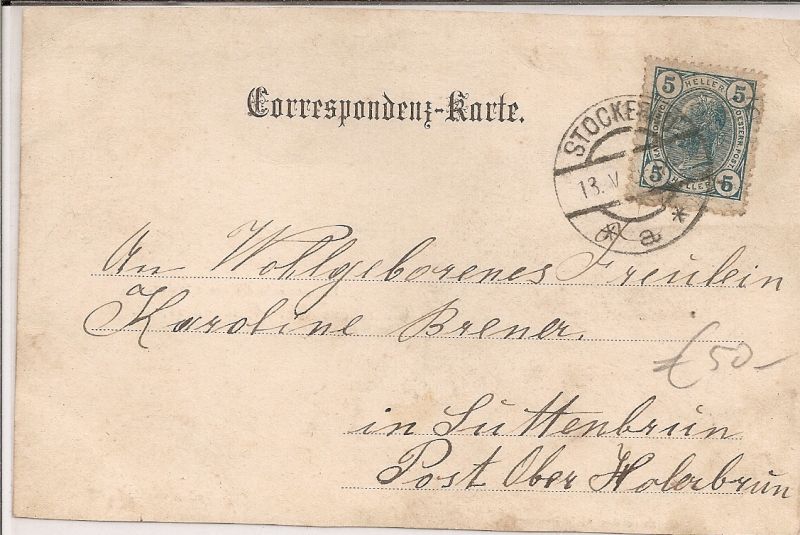 Correspondenz-Karte.
5 HELLER 5
5 HELLER 5
OESTERR. POST
STOCKER
13. V
* a *
An Wohlgeborenes Freulein
Karoline Brener.
£50-
in Suttenbrun
Post Ober Holabrun